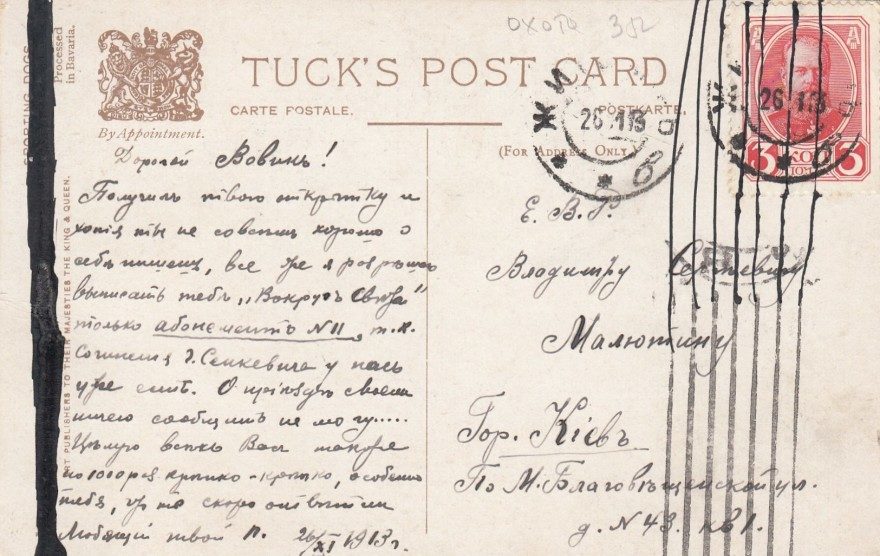 охота 352
SPORTING DOGS
Processed
in Bavaria.
TUCK'S POST CARD
CARTE POSTALE.
POSTKARTE.
By Appointment.
(FOR ADDRESS ONLY.)
ART PUBLISHERS TO THEIR MAJESTIES THE KING & QUEEN.
26.1.13
26 1.13
3 КОП 3
Дорогой Вовинъ!
Получилъ твою открытку и
хотя ты не совсѣмъ хорошо о
себѣ пишешь, все же я разрѣшаю
выписать тебѣ „Вокругъ Свѣта"
только абонементъ №II, т.к.
Сочиненія Г. Сенкевича у насъ
уже есть. О пріѣздѣ своемъ
ничего сообщить не могу.....
Цѣлую всѣхъ Васъ
по 1000 разъ крѣпко-крѣпко, особенно
тебя, за то скоро отвѣтили
Любящій твой П. 26/XI 1913 г.
Е. В. Б.
Владиміру Сергѣевичу
Малютину
Гор. Кіевъ
По М. Благовѣщенской ул.
д. N 43. кв 1.